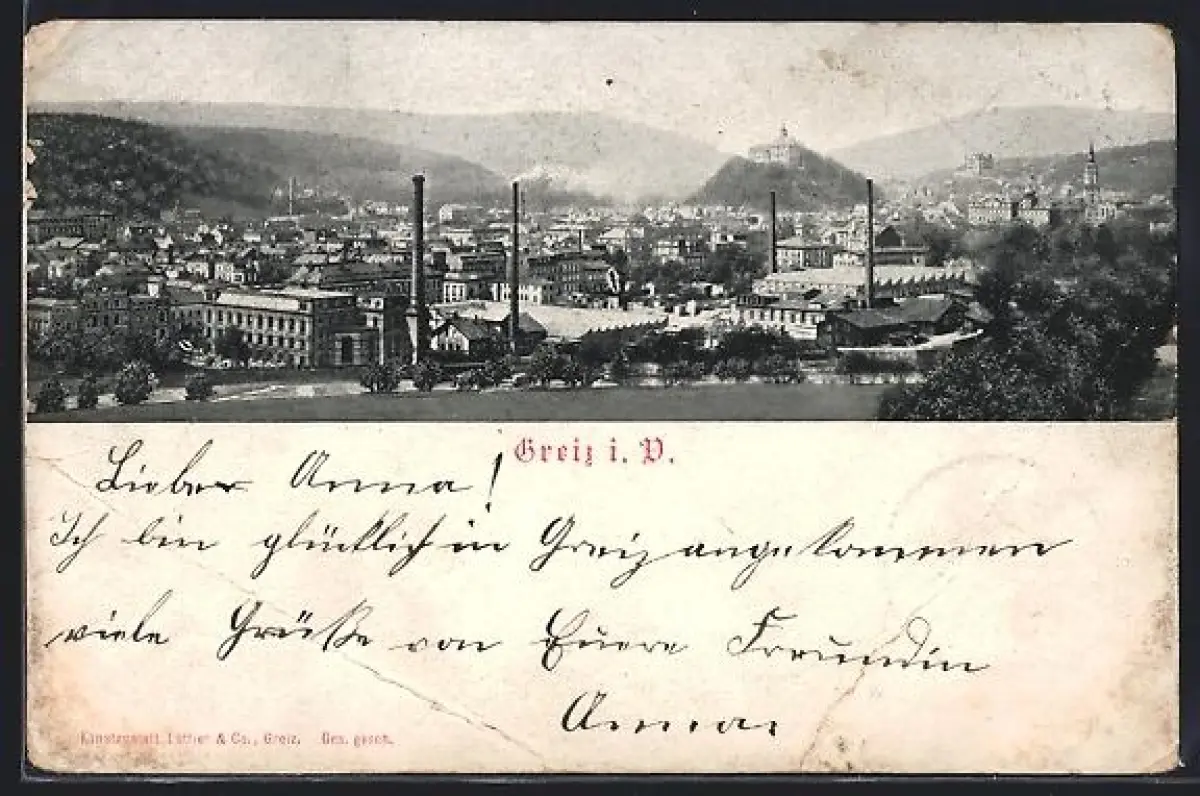 Greiz i. V.
Lieber Anna!
Ich bin glücklich in Greiz angekommen
viele Grüße von Euere Freundin
Anna.
Kunstanstalt Löffler & Co., Greiz. Ges. gesch.